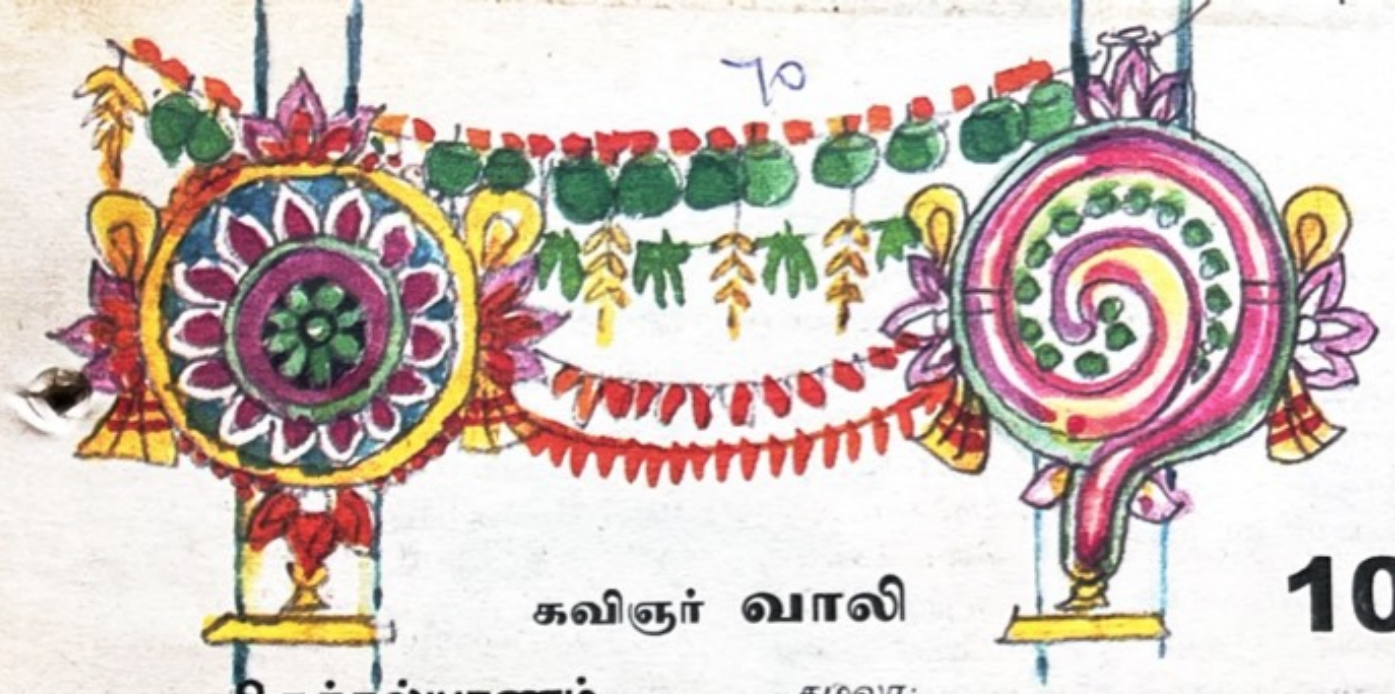 70
கவிஞர் வாலி
10